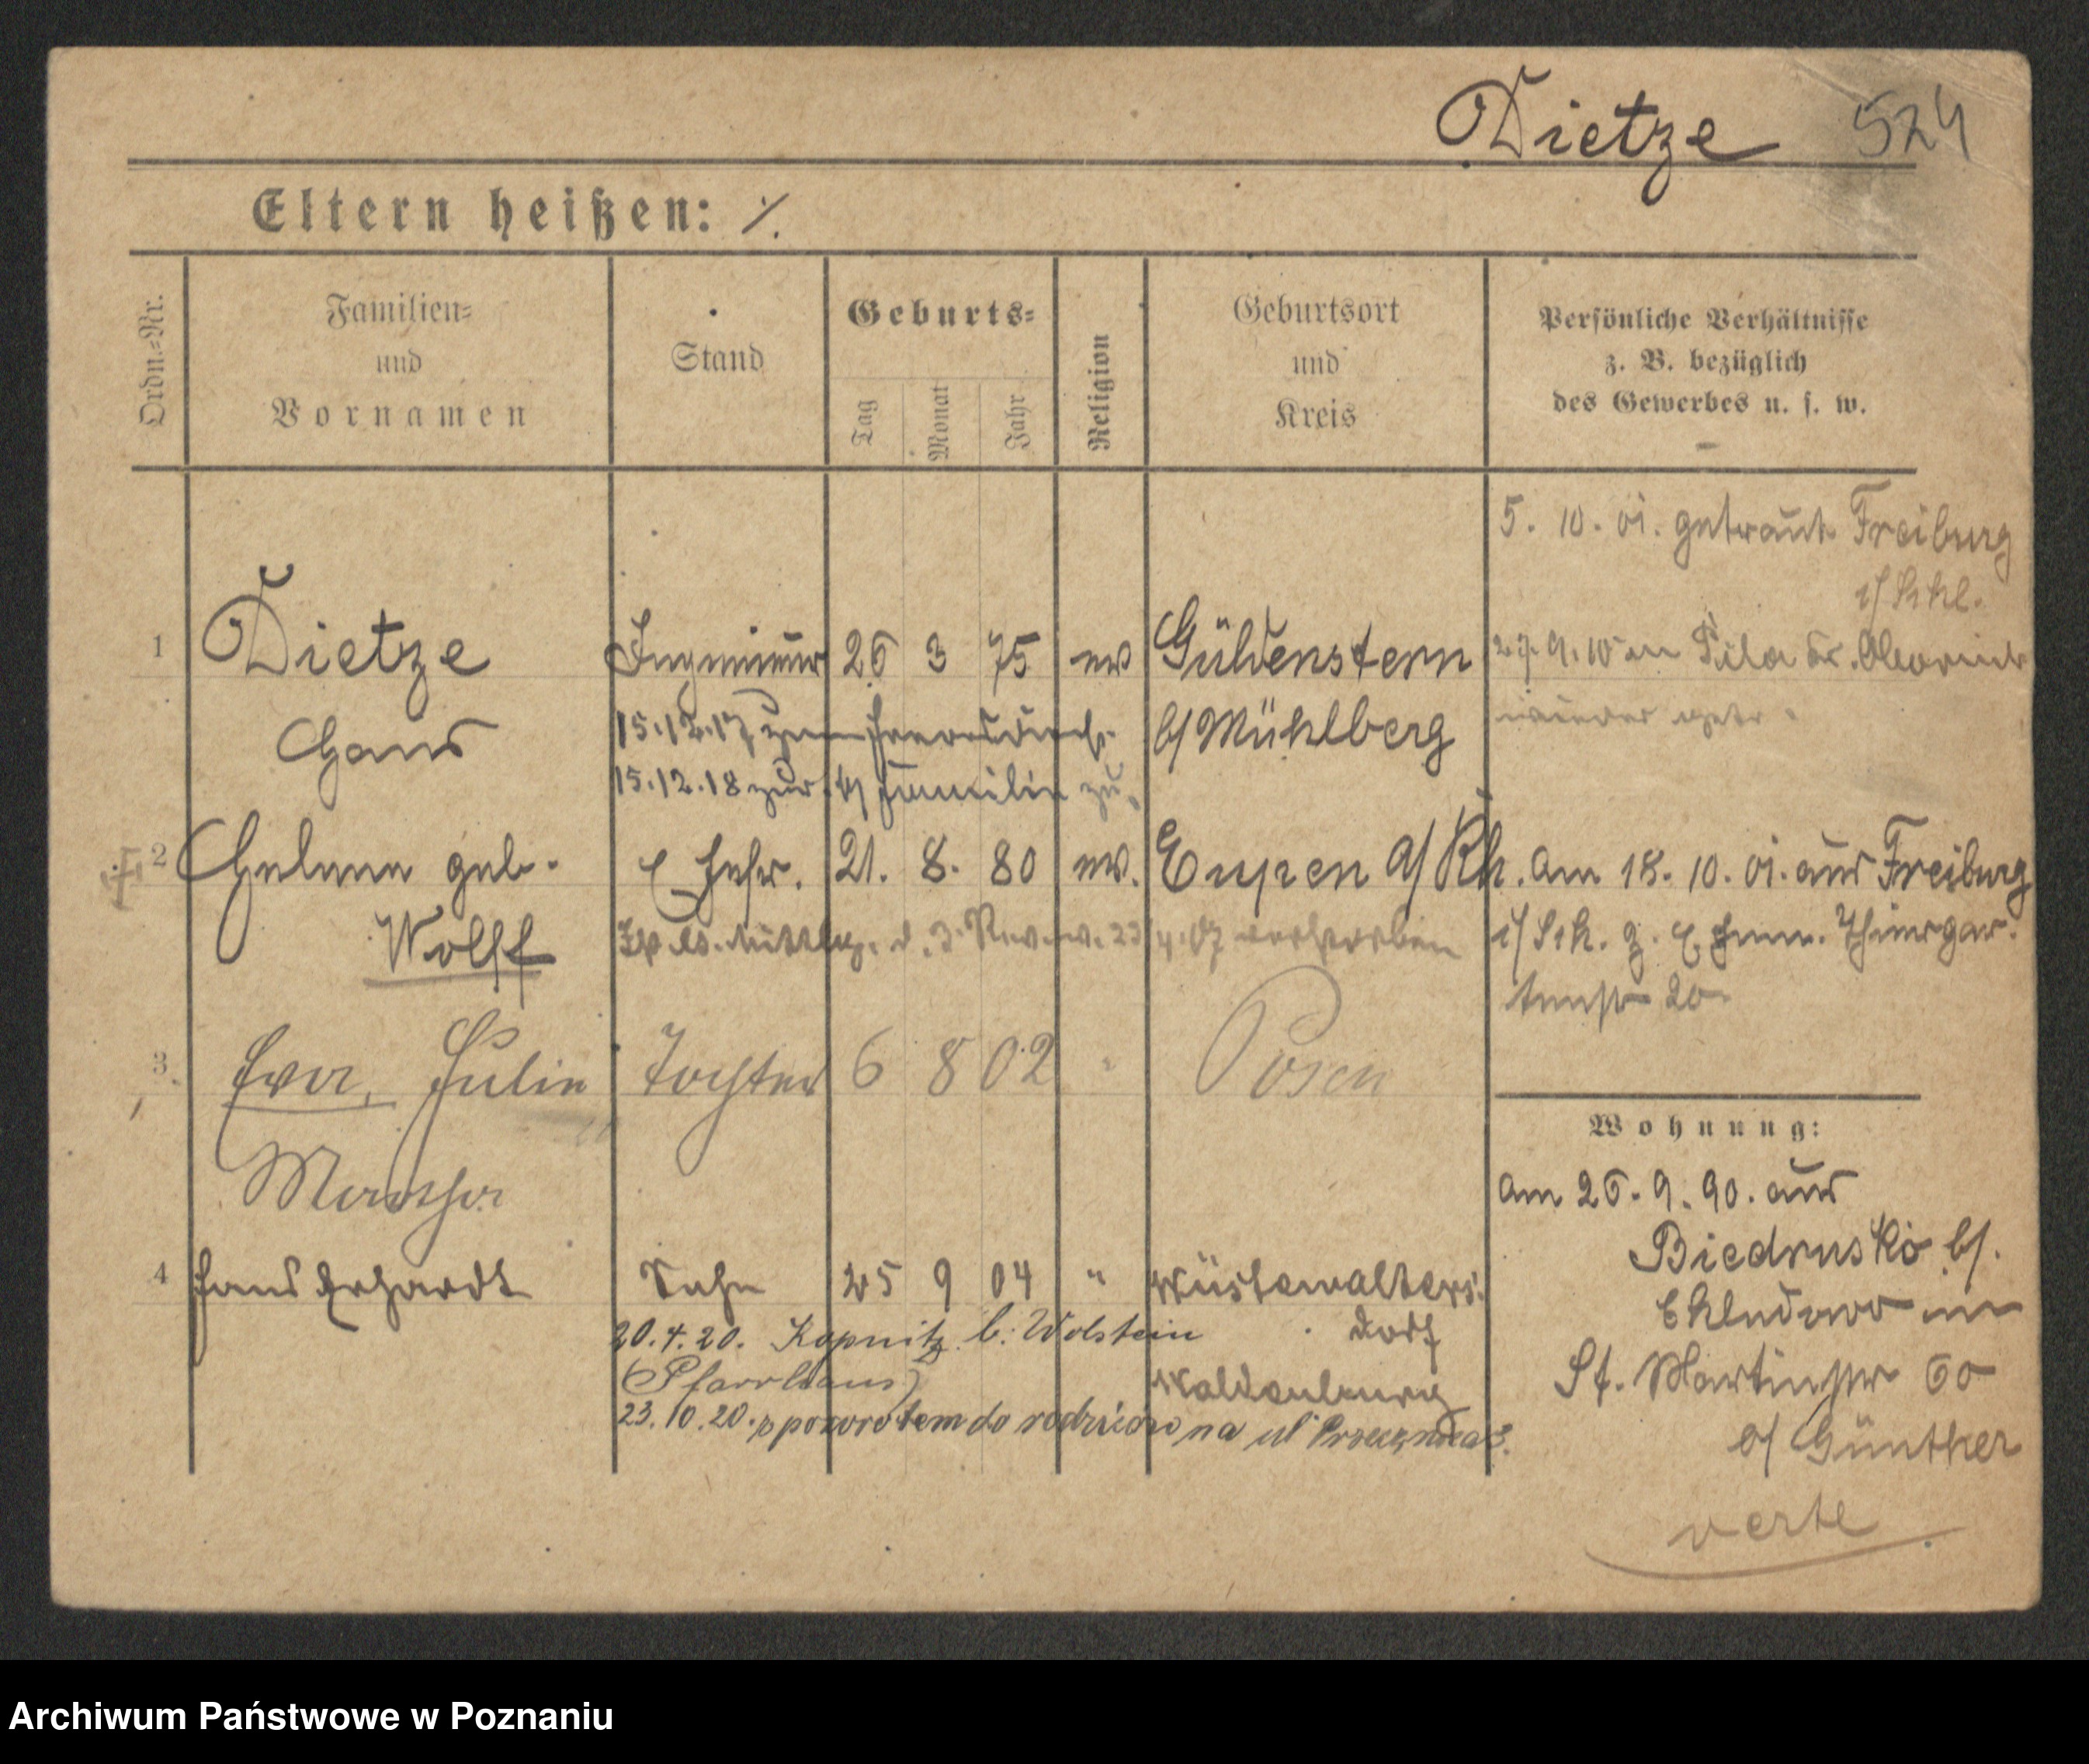 Dietze 524
Eltern heißen: ./.
Ordn.=Nr.
Familien=
und
Vornamen
Stand
Geburts=
Tag
Monat
Jahr
Religion
Geburtsort
und
Kreis
Persönliche Verhältnisse
z. B. bezüglich
des Gewerbes u. s. w.
5. 10. 01. getraut Freiburg
i/Schl.
1 Dietze Ingenieur 26 3 75 ev Güldenstern
27. 9. 10 an
wieder
Hans 15.12.17 zum Heeresdienst b/Mühlberg
15.12.18 zur Familie zu.
2 Helene geb. Ehefr. 21. 8. 80 ev. Eupen a/Rh. am 18. 10. 01. aus Freiburg
Wolff 23 4. 07 verstorben i/Sch. z. Ehem. Thiergar-
tenstr 20
3. Eva, Julie Tochter 6 8 02 " Posen
Martha
Wohnung:
am 26. 9. 90. aus
Biedrusko b/.
Chludowo in
St. Martinstr 60
b/ Günther
verte
4 Hans Erhardt Sohn 25 9 04 " Wüstewalters-
dorf
Waldenburg
20.4.20. Kopnitz b. Wolstein
(Pfarrhaus)
23.10.20. z powrotem do rodziców na ul
Archiwum Państwowe w Poznaniu